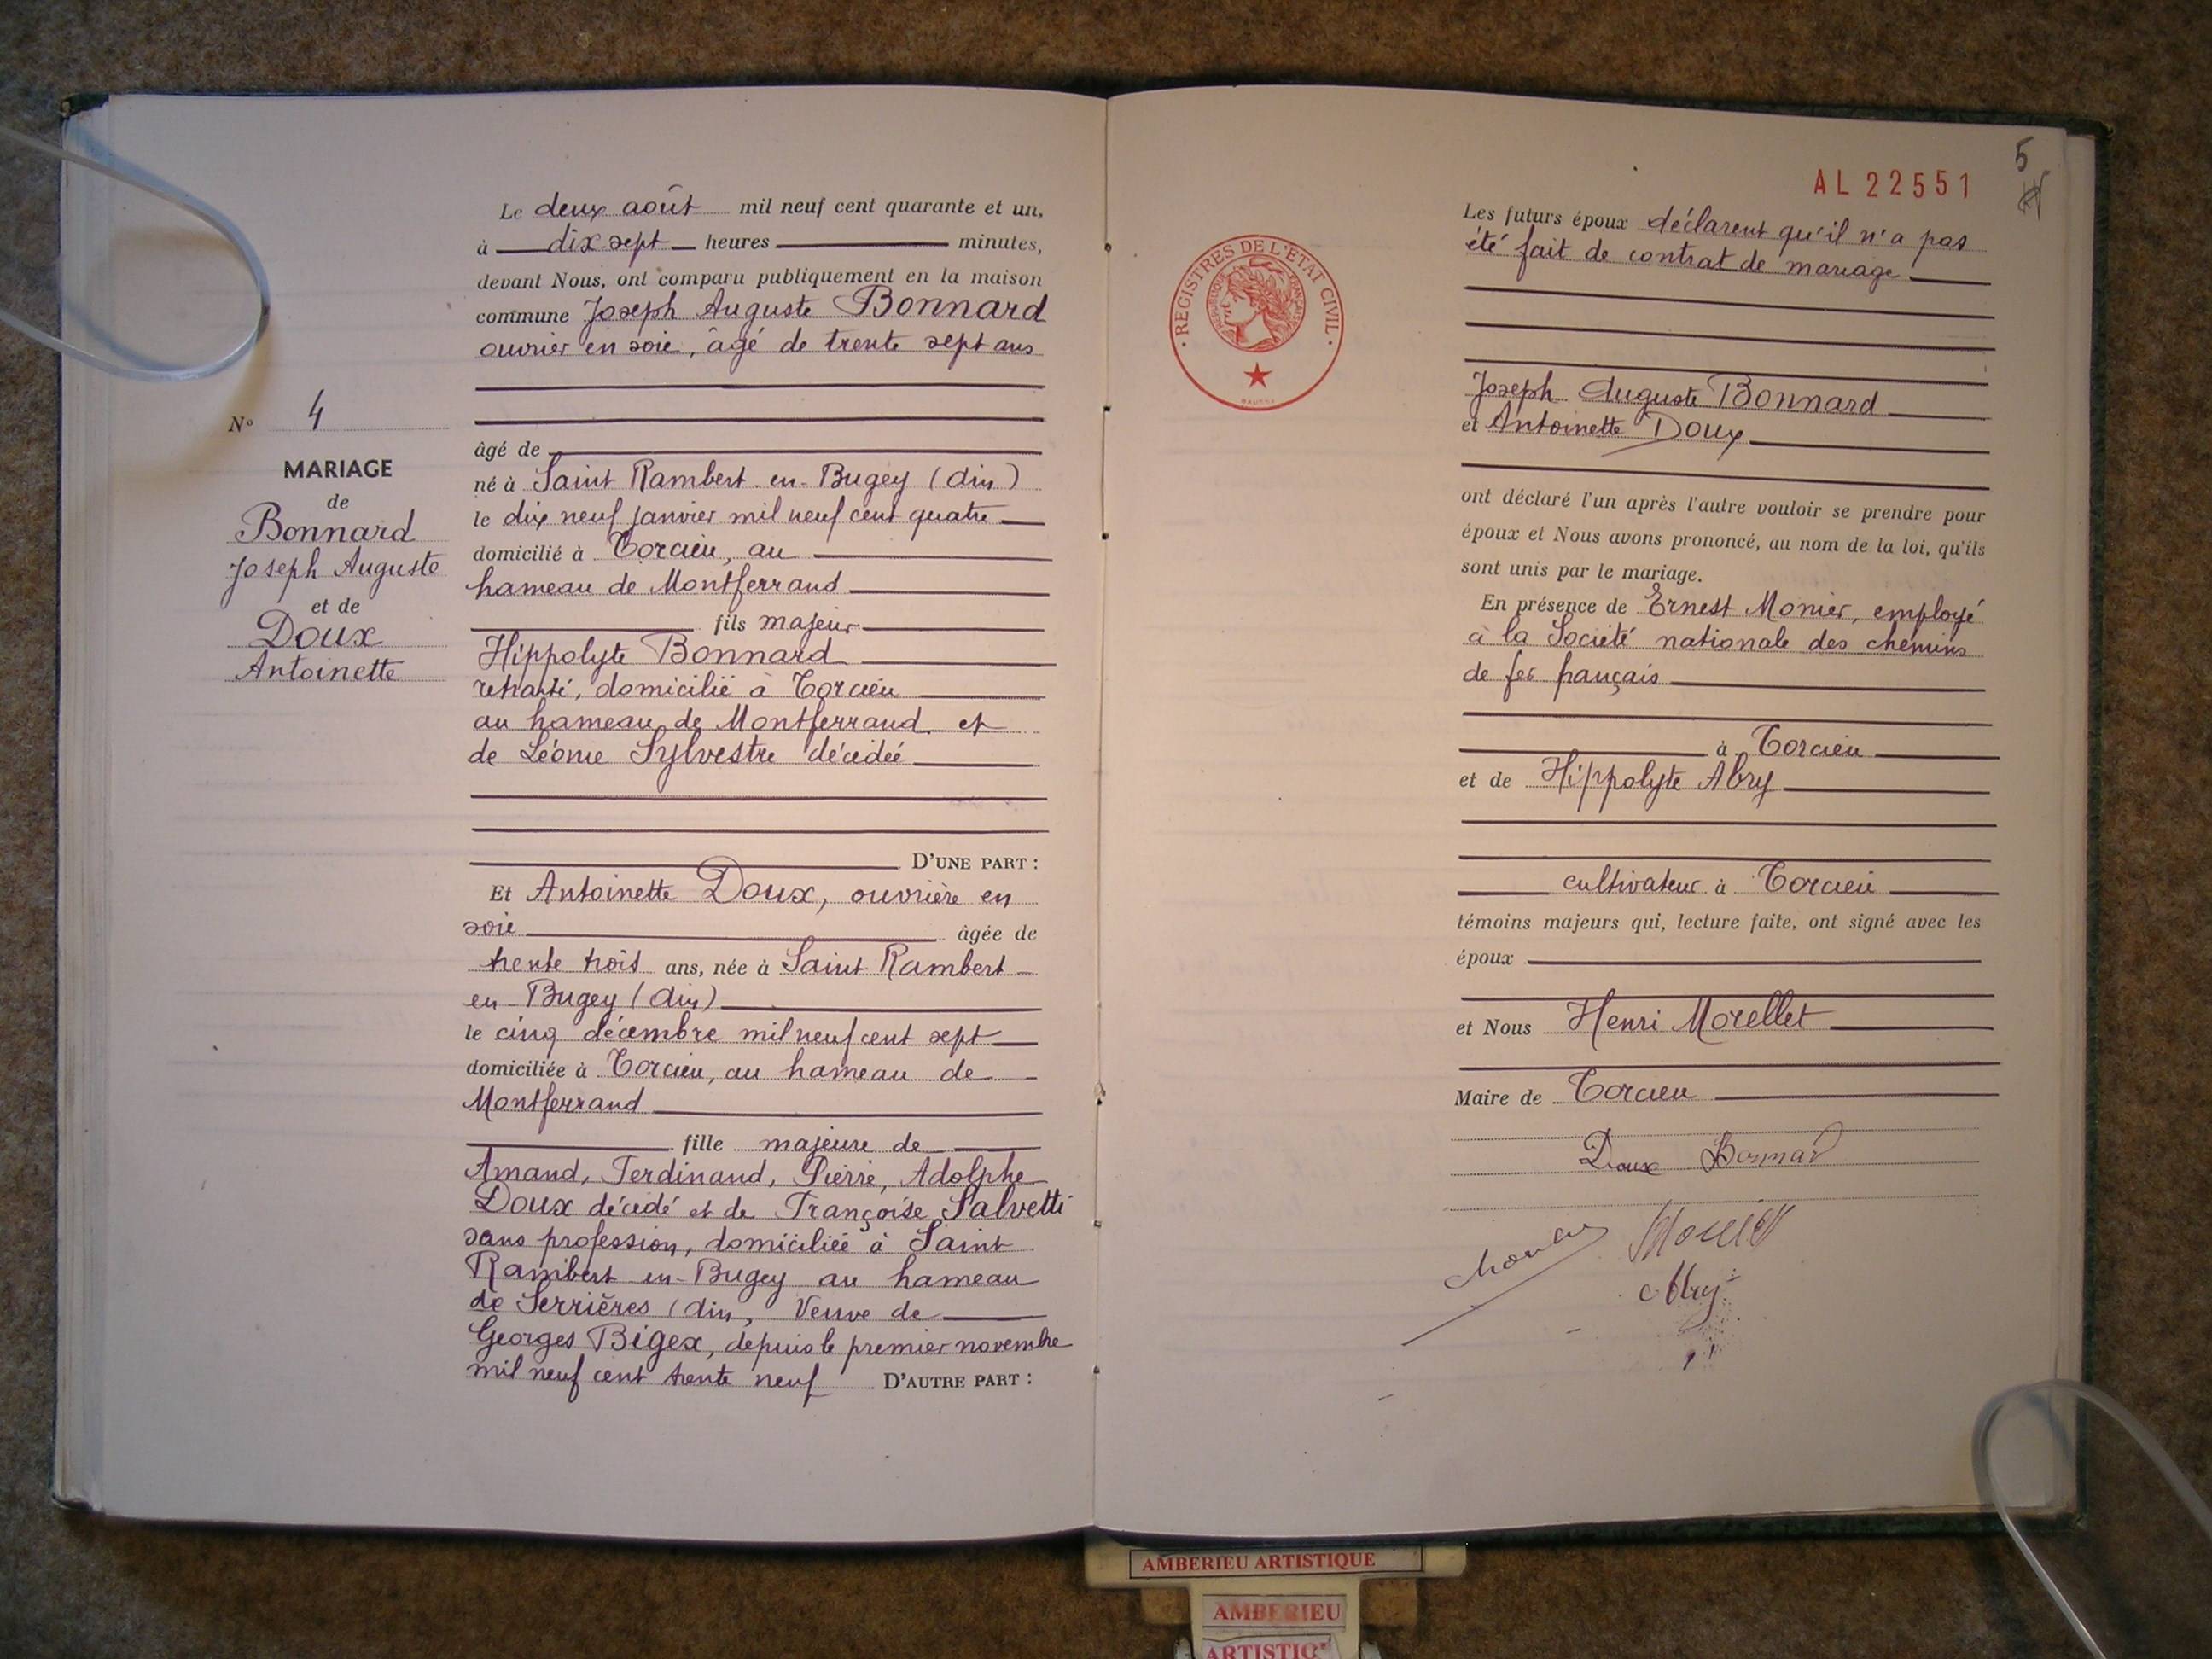 N° 4
MARIAGE
de
Bonnard
Joseph Auguste
et de
Doux
Antoinette
Le deux août mil neuf cent quarante et un,
à dix-sept heures minutes,
devant Nous, ont comparu publiquement en la maison
commune Joseph Auguste Bonnard
ouvrier en soie, âgé de trente sept ans
âgé de
né à Saint Rambert-en-Bugey (Ain)
le dix neuf janvier mil neuf cent quatre
domicilié à Torcieu, au
hameau de Montferrand
fils majeur
Hippolyte Bonnard
retraité, domicilié à Torcieu
au hameau de Montferrand et
de Léonie Sylvestre décédée
D'UNE PART :
Et Antoinette Doux, ouvrière en
soie âgée de
trente trois ans, née à Saint Rambert
en-Bugey (Ain)
le cinq décembre mil neuf cent sept
domiciliée à Torcieu, au hameau de
Montferrand
fille majeure de
Amand, Ferdinand, Pierre, Adolphe
Doux décédé et de Françoise Salvetti
sans profession, domiciliée à Saint
Rambert-en-Bugey au hameau
de Serrières (Ain, Veuve de
Georges Bigex, depuis le premier novembre
mil neuf cent trente neuf D'AUTRE PART :
5
AL 22551
REGISTRES DE L'ÉTAT CIVIL
RÉPUBLIQUE FRANÇAISE
Les futurs époux déclarent qu'il n'a pas
été fait de contrat de mariage
Joseph Auguste Bonnard
et Antoinette Doux
ont déclaré l'un après l'autre vouloir se prendre pour
époux et Nous avons prononcé, au nom de la loi, qu'ils
sont unis par le mariage.
En présence de Ernest Monier, employé
à la Société nationale des chemins
de fer français
à Torcieu
et de Hippolyte Abry
cultivateur à Torcieu
témoins majeurs qui, lecture faite, ont signé avec les
époux
et Nous Henri Morellet
Maire de Torcieu
Doux Bonnard
Abry
AMBERIEU ARTISTIQUE
AMBERIEU
ARTISTIQ